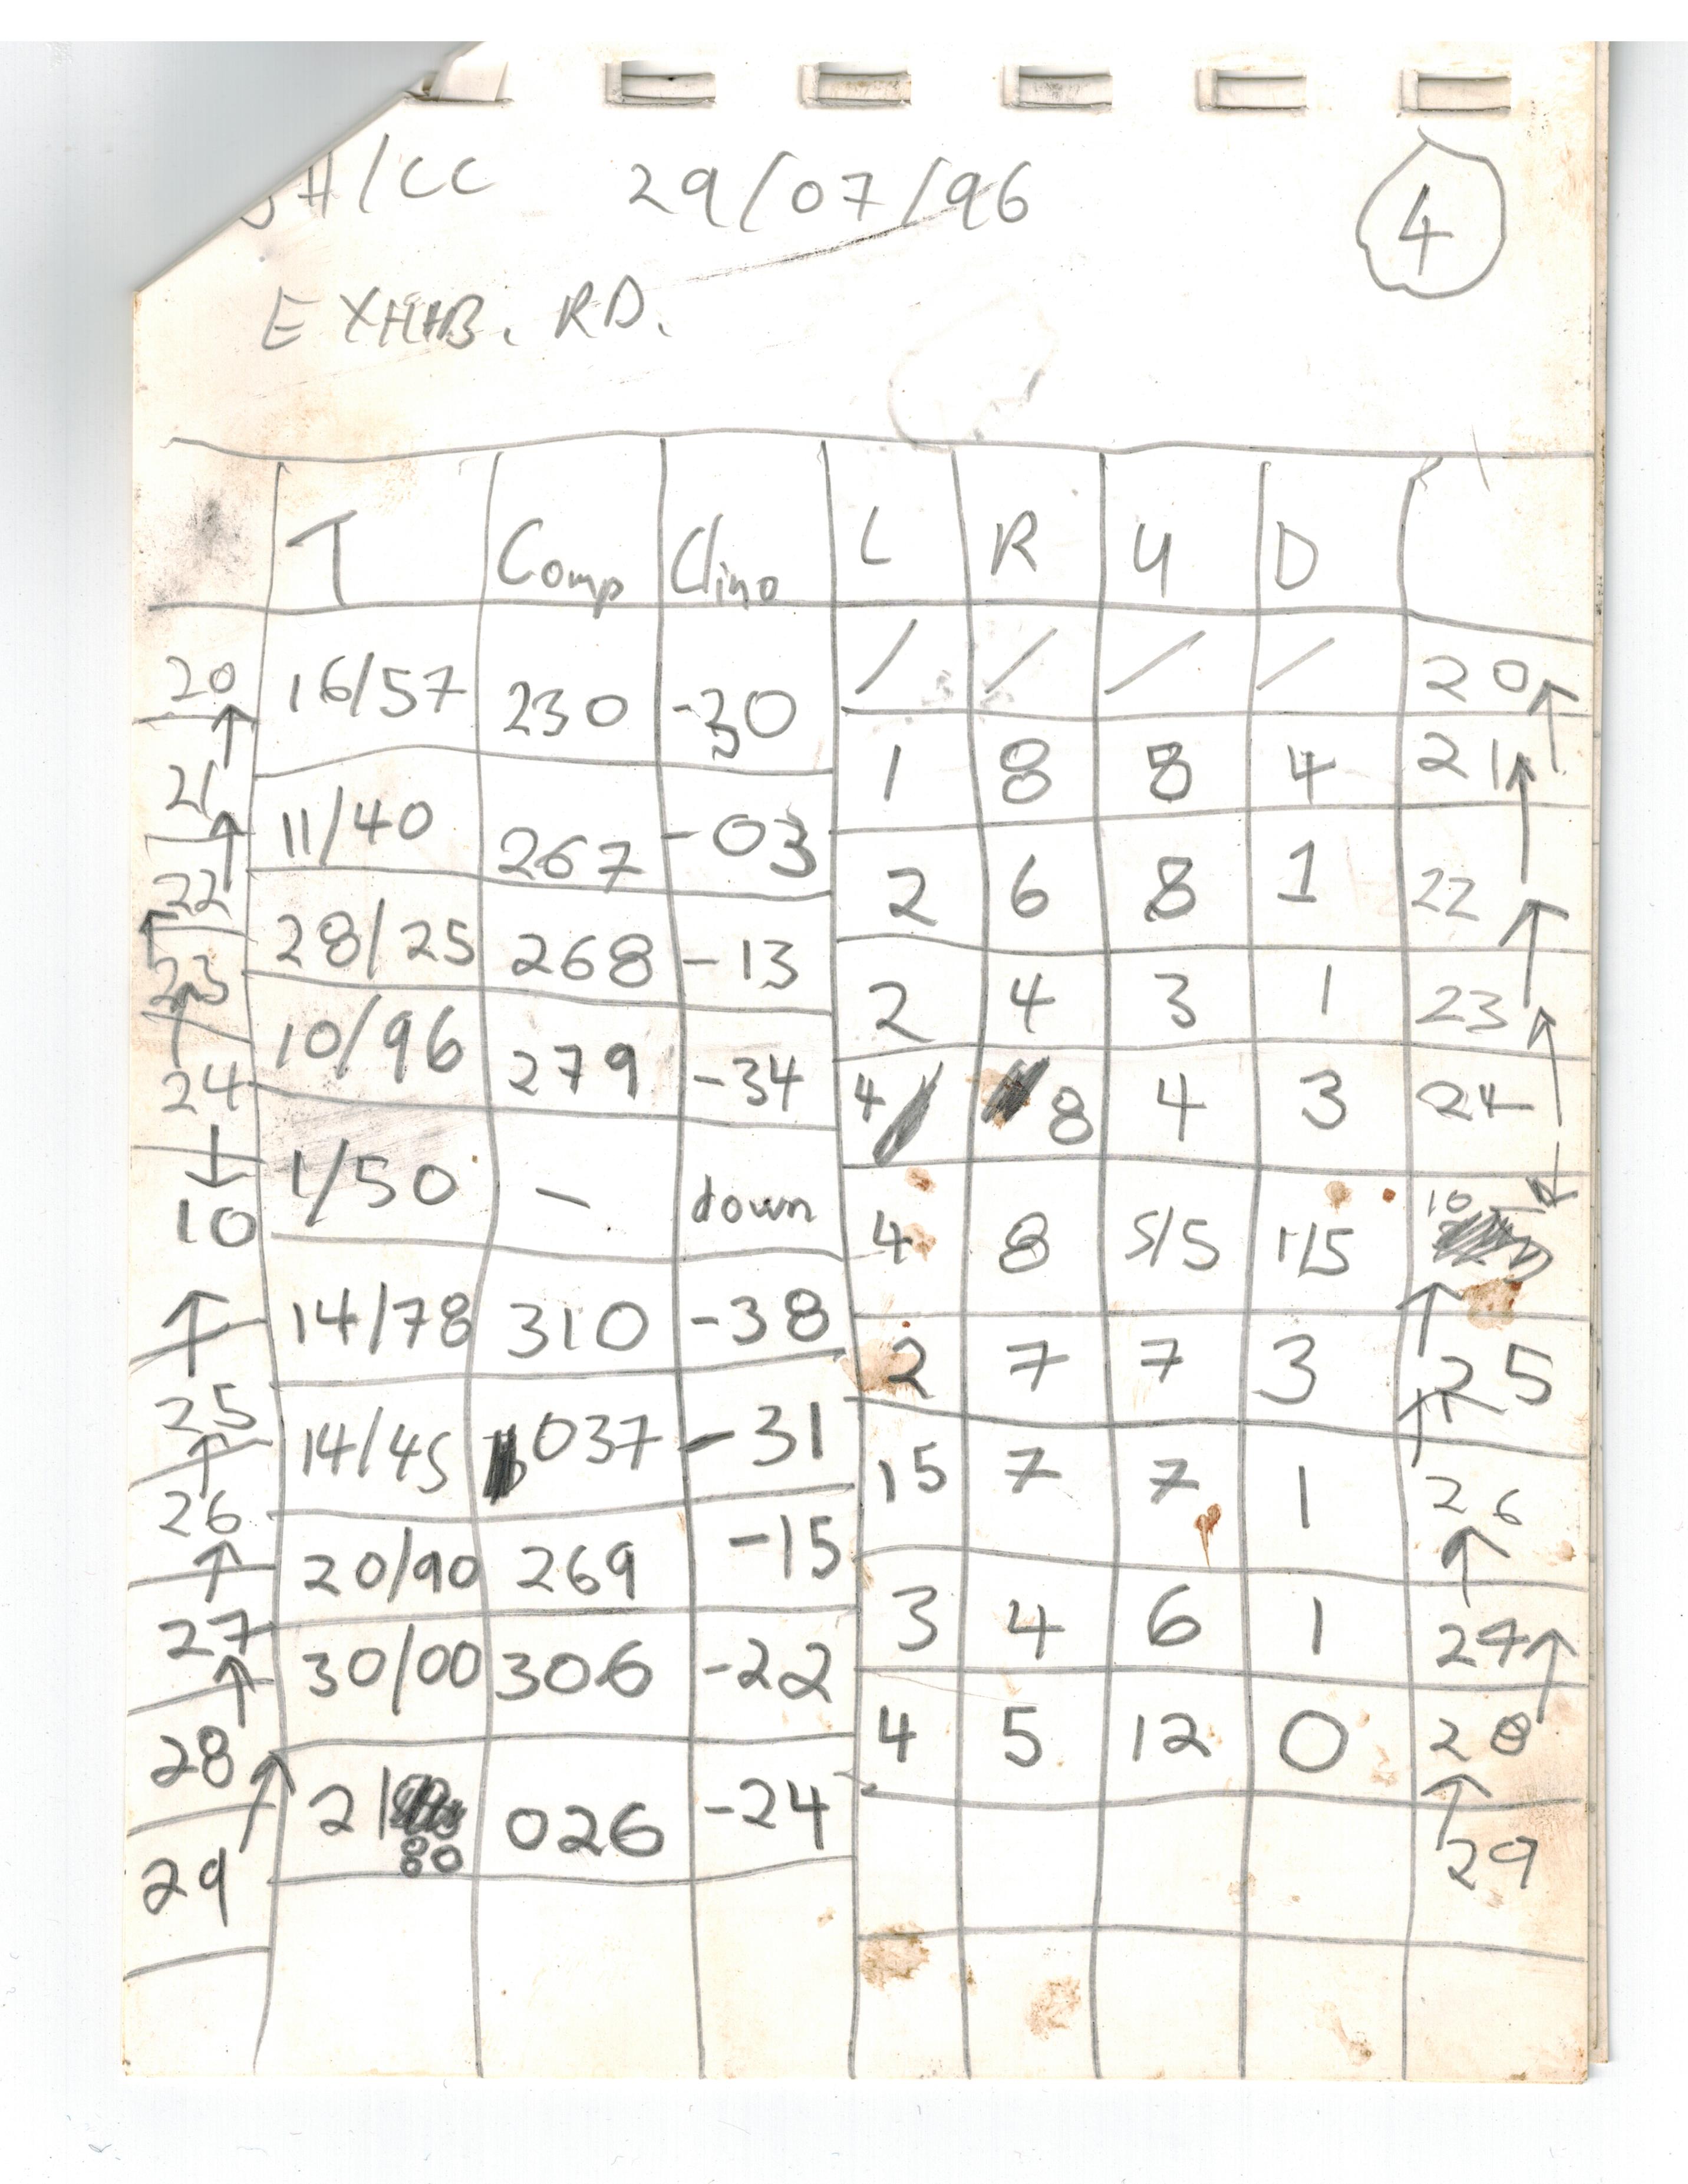 H/CC 29/07/96 4
EXHIB. RD.
T Comp Clino L R U D
20 16/57 230 -30 / / / / 20
21 11/40 267 -03 1 8 8 4 21
22 28/25 268 -13 2 6 8 1 22
23 10/96 279 -34 2 4 3 1 23
24 1/50 - down 4 8 4 3 24
10 14/78 310 -38 4 8 5/5 1/5 10
25 14/45 037 -31 2 7 7 3 25
26 20/90 269 -15 15 7 7 1 26
27 30/00 306 -22 3 4 6 1 27
28 2/80 026 -24 4 5 12 0 28
29 29